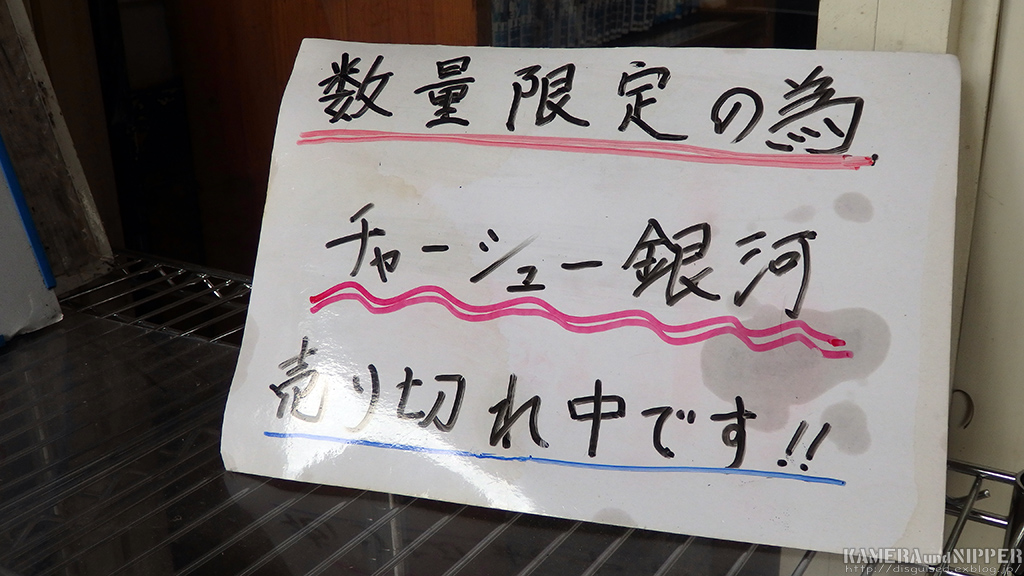 数量限定の為
チャーシュー銀河
売り切れ中です!!
KAMERAundNIPPER
http://disguised.exblog.jp/